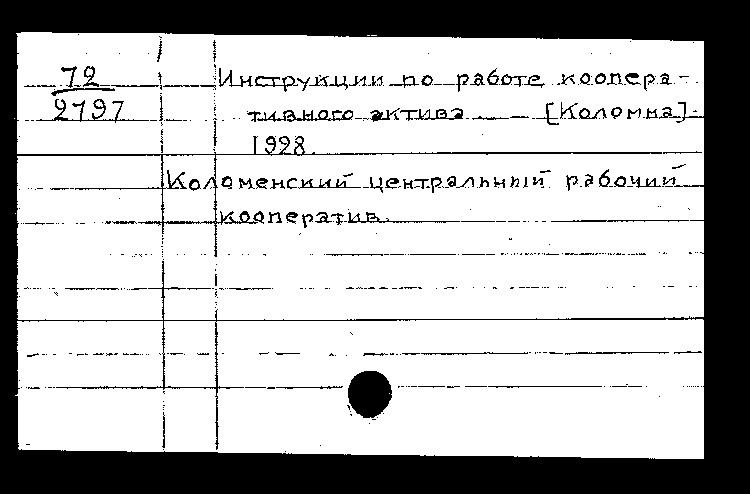 72
2197
Инструкции по работе коопера-
тивного актива. — [Коломна].
1928.
Коломенский центральный рабочий
кооператив.